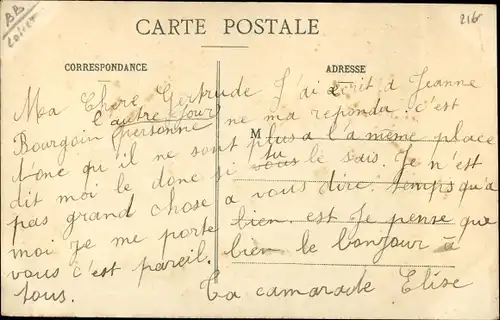 BB
216
CARTE POSTALE
CORRESPONDANCE
ADRESSE
Ma Chere Gertrude J'ai ecrit a Jeanne
l'autre jour
Bourgoin personne ne ma repondu c'est
M
d'onc qu'il ne sont plus a la même place
tu
dit moi le donc si vous le sais. Je n'est
pas grand chose a vous dire. temps qu'a
moi je me porte bien. est Je pense que
vous c'est pareil. bien le bonjour a
tous.
Ta camarade Elise